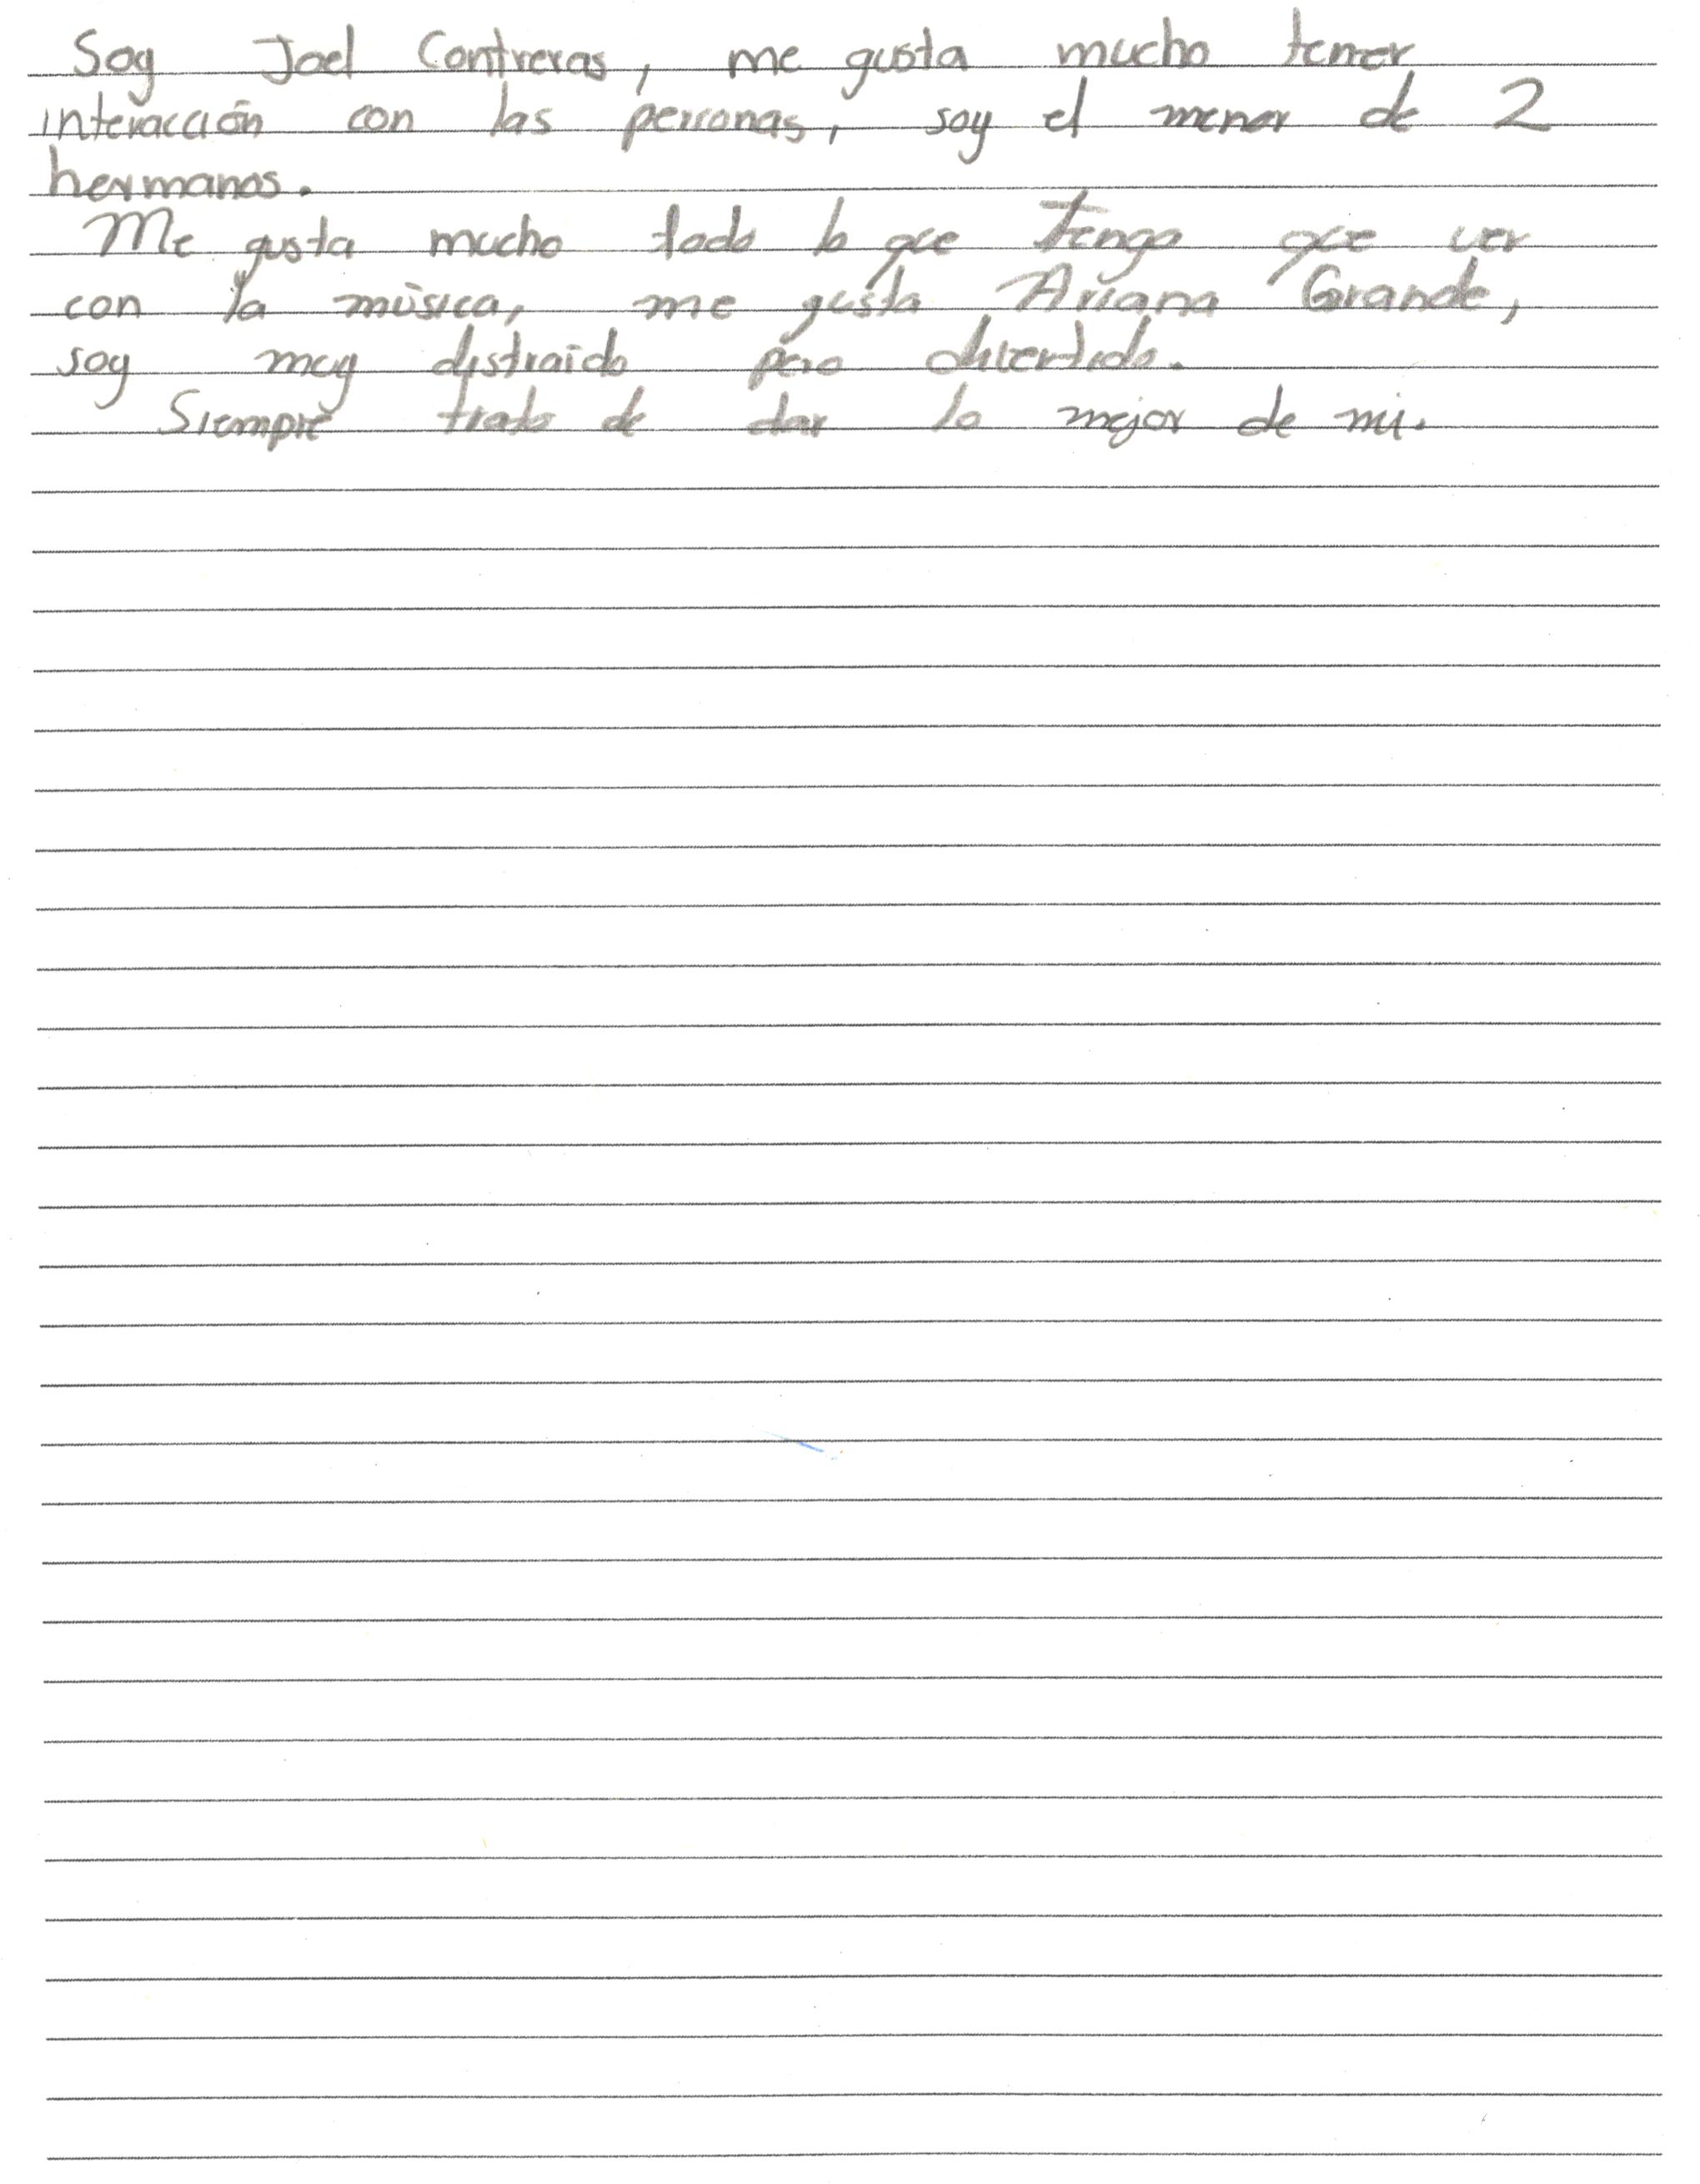 Soy Joel Contreras, me gusta mucho tener
interacción con las personas, soy el menor de 2
hermanos.
Me gusta mucho todo lo que tenga que ver
con la música, me gusta Ariana Grande,
soy muy distraido pero divertido.
Siempre trato de dar lo mejor de mi.